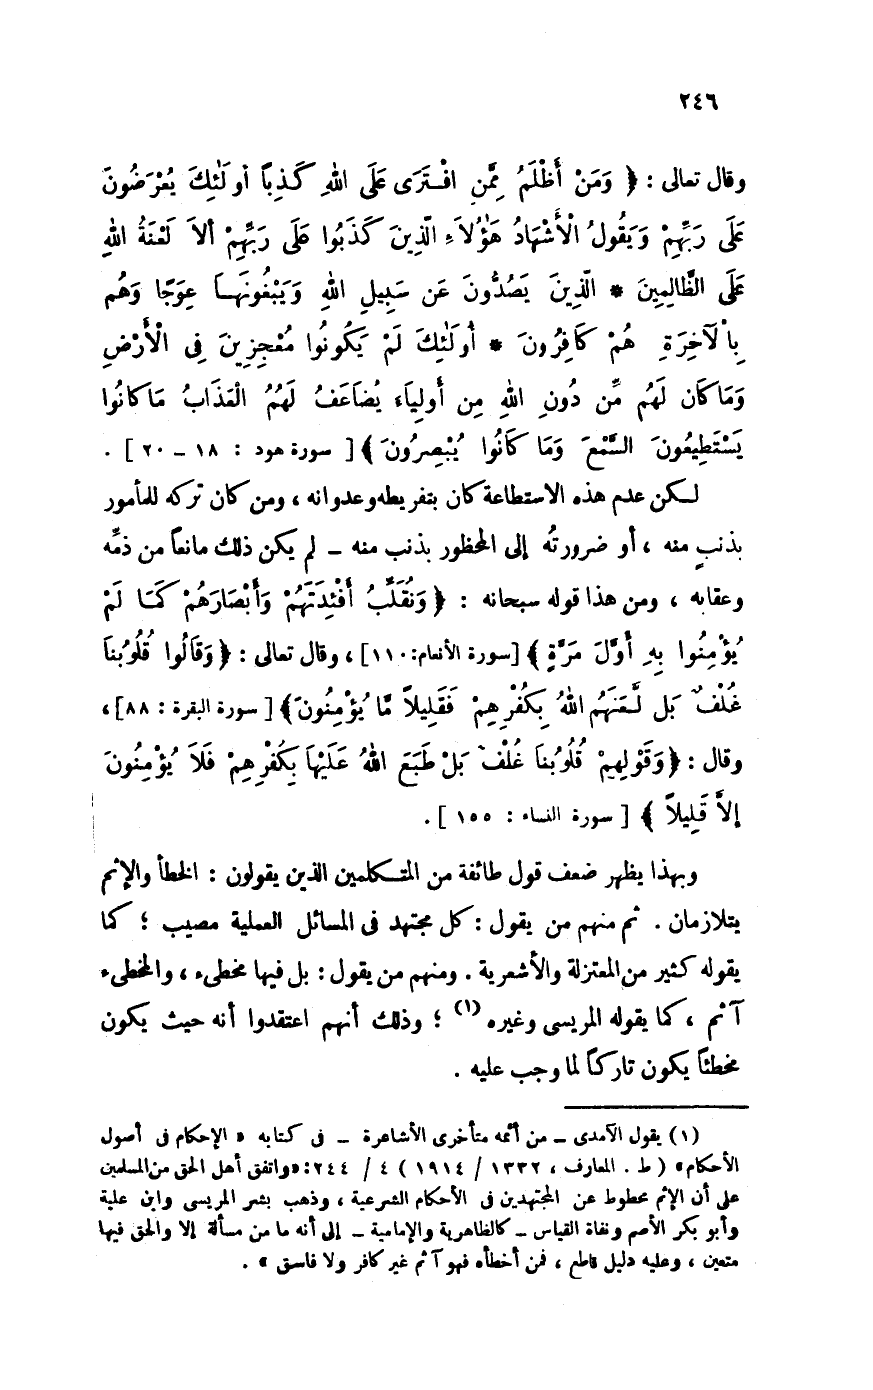 ٢٤٦
وقال تعالى : ﴿ وَمَنْ أَظْلَمُ مِمَّنِ افْتَرَى عَلَى اللهِ كَذِبًا أُولَٰئِكَ يُعْرَضُونَ
عَلَى رَبِّهِمْ وَيَقُولُ الْأَشْهَادُ هَٰؤُلَاءِ الَّذِينَ كَذَبُوا عَلَى رَبِّهِمْ أَلاَ لَعْنَةُ اللهِ
عَلَى الظَّالِمِينَ * الَّذِينَ يَصُدُّونَ عَن سَبِيلِ اللهِ وَيَبْغُونَهَا عِوَجًا وَهُم
بِالْآخِرَةِ هُمْ كَافِرُونَ * أُولَٰئِكَ لَمْ يَكُونُوا مُعْجِزِينَ فِى الْأَرْضِ
وَمَا كَانَ لَهُم مِّن دُونِ اللهِ مِن أَولِيَاءَ يُضَاعَفُ لَهُمُ الْعَذَابُ مَا كَانُوا
يَسْتَطِيعُونَ السَّمْعَ وَمَا كَانُوا يُبْصِرُونَ ﴾ [ سورة هود : ١٨ – ٢٠ ] .
لكن عدم هذه الاستطاعة كان بتفريطه وعدوانه ، ومن كان تركه للمأمور
بذنبٍ منه ، أو ضرورتُه إلى المحظور بذنب منه – لم يكن ذلك مانعاً من ذمِّه
وعقابه ، ومن هذا قوله سبحانه : ﴿ وَنُقَلِّبُ أَفْئِدَتَهُمْ وَأَبْصَارَهُمْ كَمَا لَمْ
يُؤْمِنُوا بِهِ أَوَّلَ مَرَّةٍ ﴾ [سورة الأنعام: ١١٠] ، وقال تعالى : ﴿ وَقَالُوا قُلُوبُنَا
غُلْفٌ بَل لَّعَنَهُمُ اللهُ بِكُفْرِهِمْ فَقَلِيلاً مَّا يُؤْمِنُونَ﴾ [ سورة البقرة : ٨٨] ،
وقال : ﴿وَقَوْلِهِمْ قُلُوبُنَا غُلْفٌ بَلْ طَبَعَ اللهُ عَلَيْهَا بِكُفْرِهِمْ فَلَا يُؤْمِنُونَ
إلاَّ قَلِيلاً ﴾ [ سورة النساء : ١٥٥ ] .
وبهذا يظهر ضعف قول طائفة من المتكلمين الذين يقولون : الخطأ والإثم
يتلازمان . ثم منهم من يقول : كل مجتهد فى المسائل العملية مصيب ؛ كما
يقوله كثير من المعتزلة والأشعرية . ومنهم من يقول : بل فيها مخطىء ، والمخطىء
آثم ، كما يقوله المريسى وغيره (١) ؛ وذلك أنهم اعتقدوا أنه حيث يكون
مخطئاً يكون تاركاً لما وجب عليه .
(١) يقول الآمدى – من أئمه متأخرى الأشاعرة – فى كتابه « الإحكام فى أصول
الأحكام» ( ط . المعارف ، ١٣٣٢ / ١٩١٤ ) ٤ / ٢٤٤ : «واتفق أهل الحق من المسلمين
على أن الإثم محطوط عن المجتهدين فى الأحكام الشرعية ، وذهب بشر المريسى وابن علية
وأبو بكر الأصم ونفاة القياس – كالظاهرية والإمامية – إلى أنه ما من مسألة إلا والحق فيها
متعين ، وعليه دليل قاطع ، فمن أخطأه فهو آثم غير كافر ولا فاسق » .